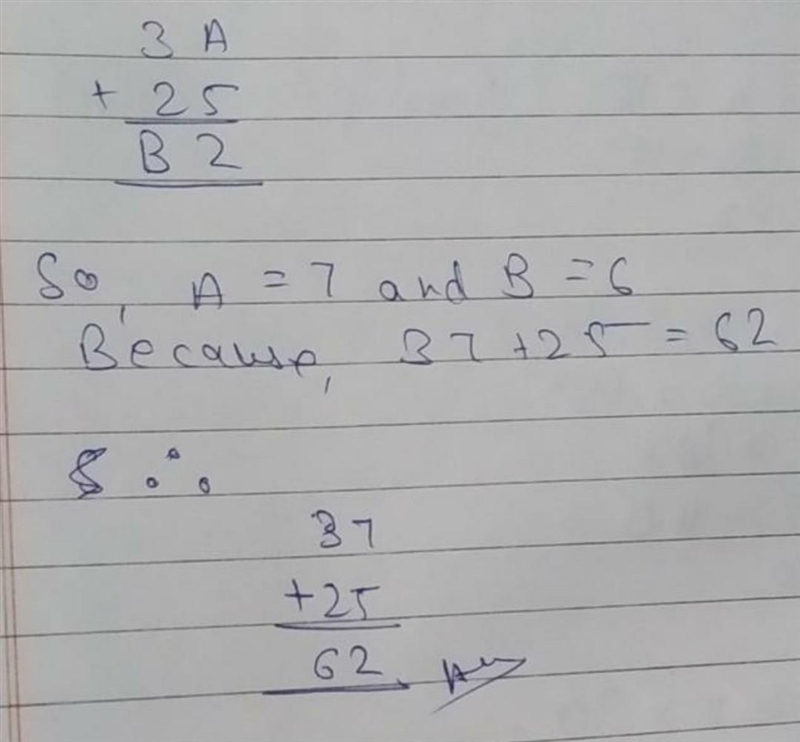 3 A
+ 25
B 2
So, A = 7 and B = 6
Because, 37 + 25 = 62
∴
37
+25
62